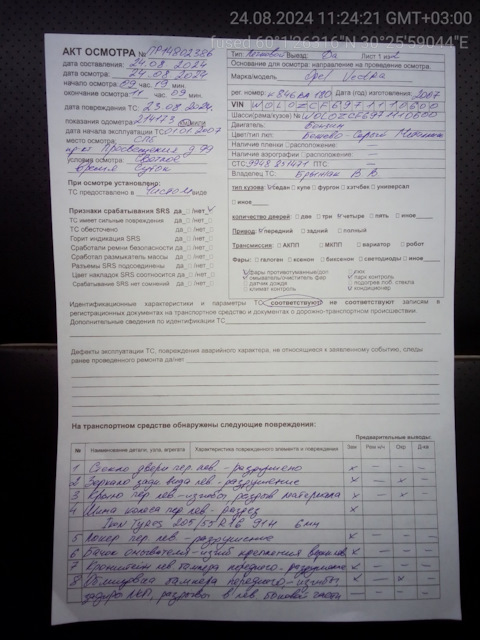 24.08.2024 11:24:21 GMT+03:00
fused 60°1'26316"N 30°25'59044"E
АКТ ОСМОТРА № ПР14802386 Тип: Легковой Выезд: Да Лист 1 из 2
дата составления: 24.08.2024 Основание для осмотра: направление на проведение осмотра.
дата осмотра: 24.08.2024 Марка/модель Opel Vectra
начало осмотра 09 час. 19 мин.
окончание осмотра 11 час. 09 мин. рег. номер: К 846 АА 180 Дата изготовления 2007
дата повреждения ТС: 23.08.2024. VIN W0L0ZCF6971110600
показания одометра 214173 Шасси(рама/кузов) № W0L0ZCF6971110600
дата начала эксплуатации ТС: 01.01.2007 Двигатель: Бензин
место осмотра: СПБ Цвет/тип лкп: Бежево-Серый Металлик
пр-т Просвещения д 99 Наличие пленки □расположение: —
условия осмотра: Светлое Наличие аэрографии □расположение: —
время суток СТС 9948 851471 ПТС —
Владелец ТС: В. В.
При осмотре установлено:
ТС предоставлено в чистом виде
тип кузова: седан □ купе □ фургон □ хэтчбек □ универсал
□ иное
Признаки срабатывания SRS да □ /нет
ТС имеет сильные повреждения да □ /нет □
ТС обесточено да □ /нет □
Горит индикация SRS да □ /нет □
Сработали ремни безопасности да □ /нет □
Сработал размыкатель массы да □ /нет □
Разъемы SRS подсоединены да □ /нет □
Цвет накладок SRS соотносится да □ /нет □
Срабатывание SRS нет сомнений да □ /нет □
количество дверей: □ две □ три четыре □ пять □ иное
Привод: передний □ задний □ полный
Трансмиссия: □ АКПП □ МКПП □ вариатор □ робот
Фары: □ галоген □ ксенон □ биксенон □ светодиоды □ иное
фары противотуманные/доп □ люк
омыватель/очиститель фар парк контроль
□ датчик дождя □ подогрев лоб. стекла
□ климат контроль кондиционер
Идентификационные характеристики и параметры ТС соответствуют/ не соответствуют записям в
регистрационных документах на транспортное средство и документах о дорожно-транспортном происшествии.
Дополнительные сведения по идентификации ТС
Дефекты эксплуатации ТС, повреждения аварийного характера, не относящиеся к заявленному событию, следы
ранее проведенного ремонта да/нет
На транспортном средстве обнаружены следующие повреждения:
Предварительные выводы:
№ Наименование детали, узла, агрегата Характеристика поврежденного элемента и повреждения Зам Рем н/ч Окр Д-ка
1 Стекло двери пер. лев. - разрушено х — — —
2 Зеркало задн. вида лев - разрушение х — х —
3 Крыло пер лев - изгибы разрыв материала х — х —
4 Шина колеса пер лев - разрез х — — —
Ikon Tyres 205/55 R16 91H 6мм
5 Локер пер. лев - разрушение х — — —
6 Бачок омывателя - изгиб крепления х — — —
7 Кронштейн лев бампера переднего - разрушение х — — —
8 Облицовка бампера переднего - изгибы х — х —
задиры ЛКП, разрывы в лев. боковой части — — — —